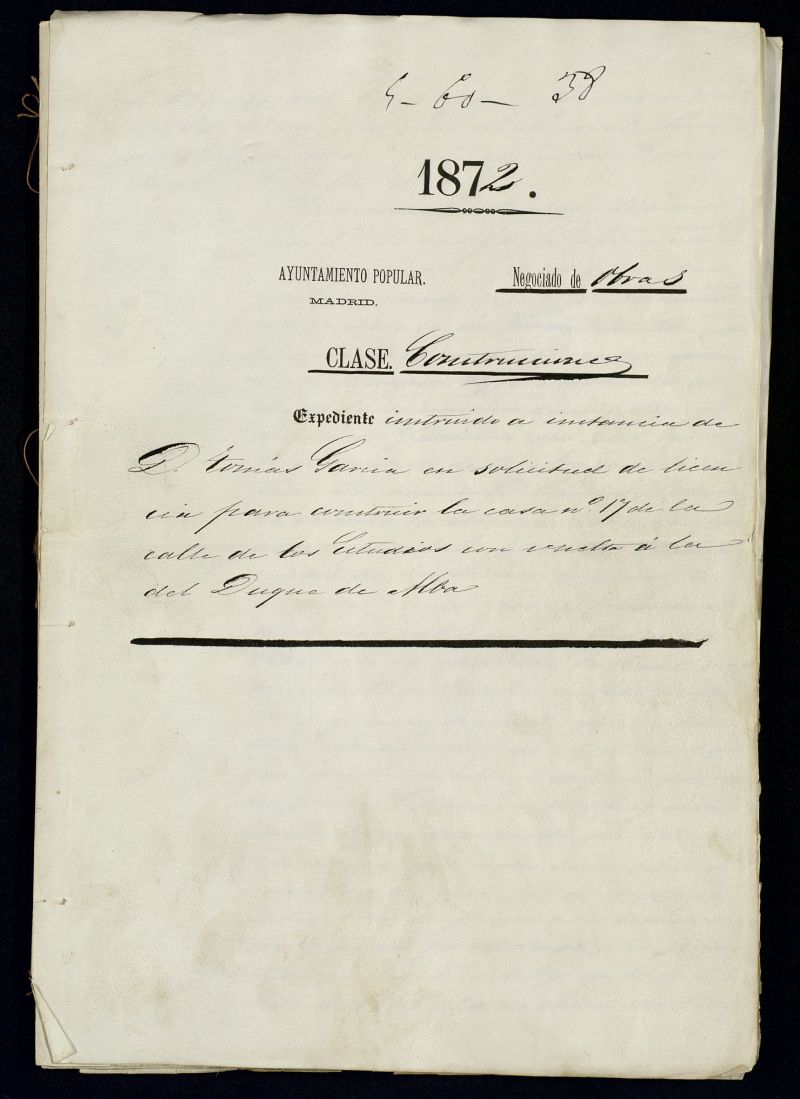 5 - 60 - 38
1872.
AYUNTAMIENTO POPULAR.
MADRID.
Negociado de Obras
CLASE. Construcciones
Expediente instruido a instancia de
D. Tomás Garcia en solicitud de licen
cia para construir la casa nº 17 de la
calle de los Estudios con vuelta á la
del Duque de Alba